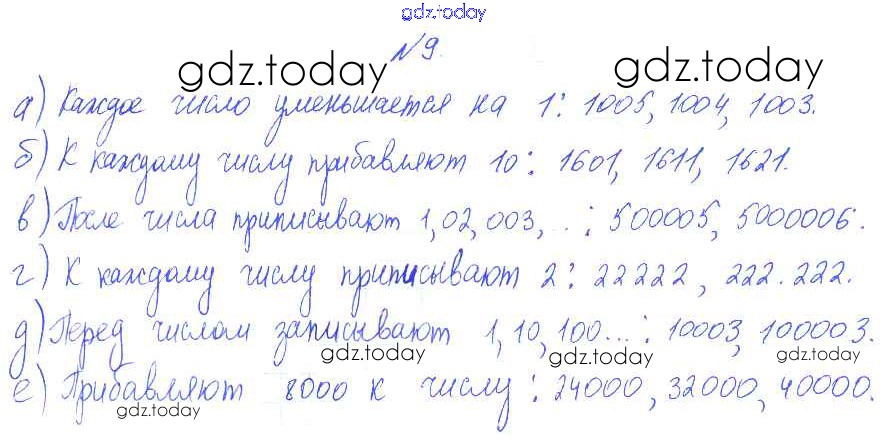 gdz.today
N 9.
gdz.today gdz.today
а) Каждое число уменьшается на 1: 1005, 1004, 1003.
б) К каждому числу прибавляют 10: 1601, 1611, 1621.
в) После числа приписывают 1, 02, 003, ..: 500005, 5000006.
г) К каждому числу приписывают 2: 22222, 222.222.
д) Перед числом записывают 1, 10, 100...: 10003, 100003.
gdz.today gdz.today gdz.today
е) Прибавляют 8000 к числу: 24000, 32000, 40000.
gdz.today gdz.today